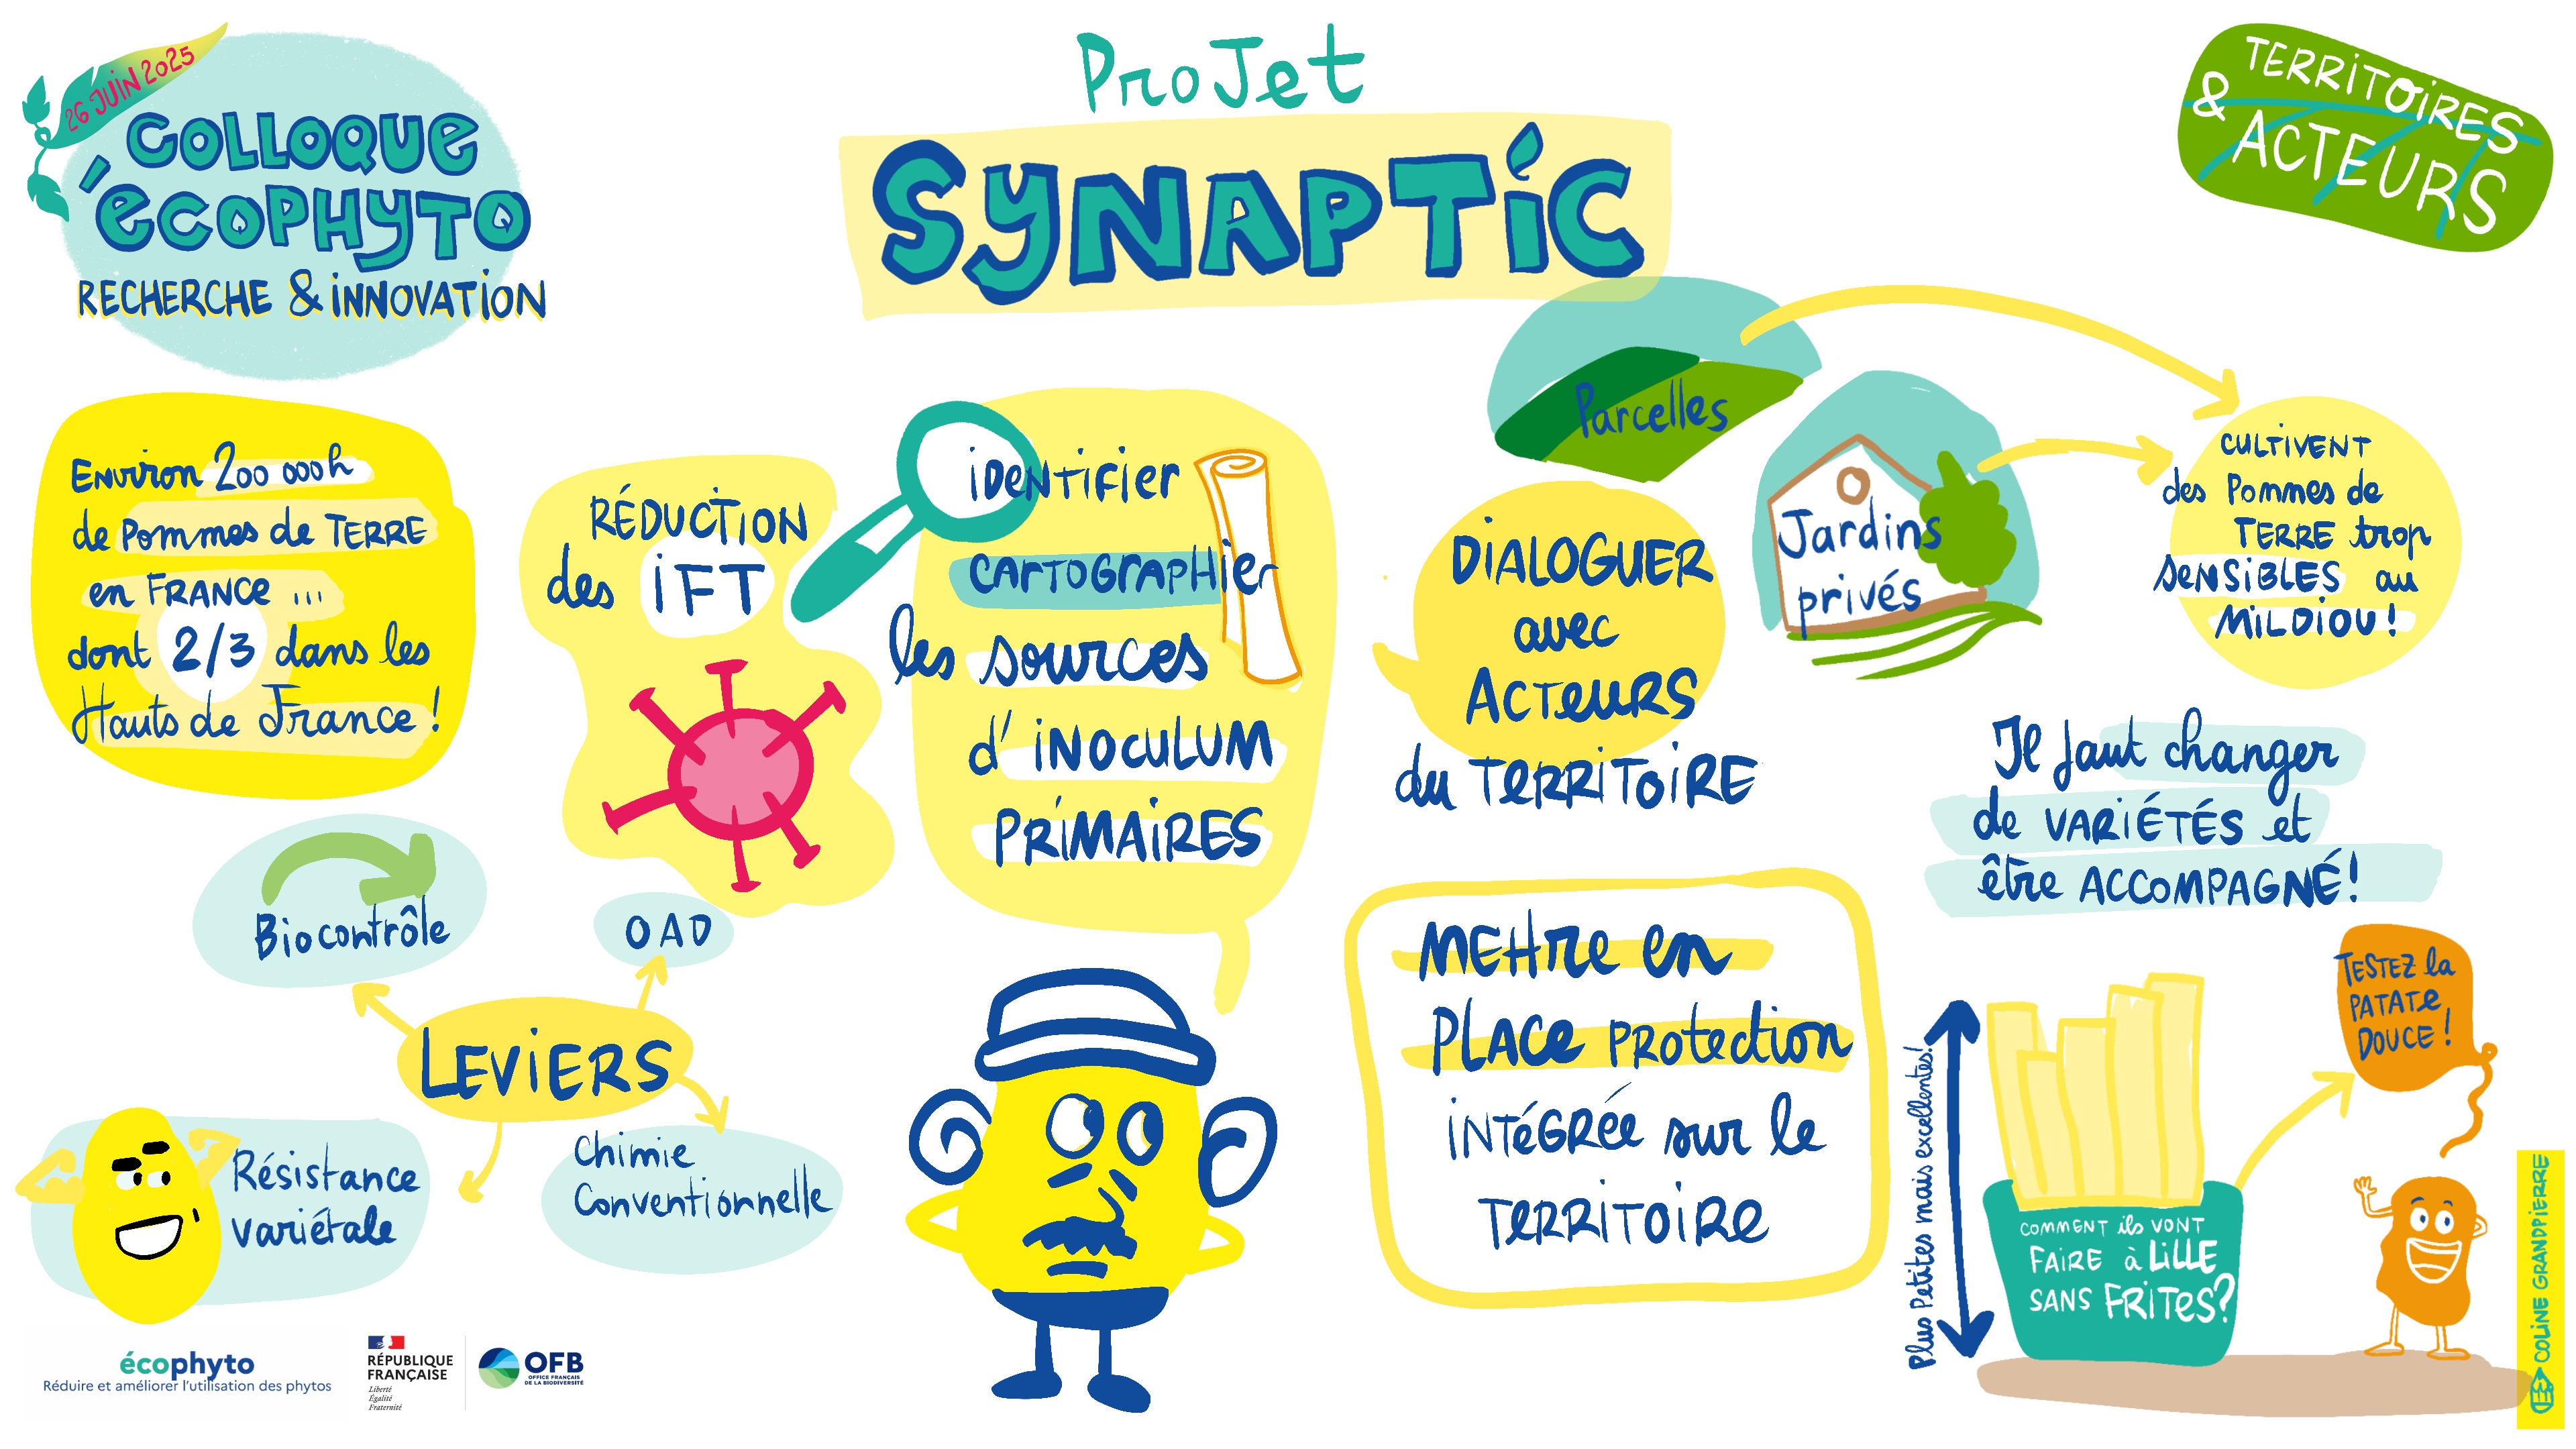 26 JUIN 2025
COLLOQUE
éCOPHYTO
RECHERCHE & iNNOVATiON
ProJet
SYNAPTiC
TERRiTOiRES
& ACTEURS
Environ 200 000h
de Pommes de TERRE
en FRANCE ...
dont 2/3 dans les
Hauts de France !
RÉDUCTiON
des iFT
iDeNTiFier
CArTOGrAPHier
les sources
d' iNOCULUM
PRiMAiRES
Parcelles
Jardins
privés
CULTiVENT
des Pommes de
TERRE trop
SeNSiBLES au
MiLDiOU !
DiALOGUER
avec
ACTeURS
du TeRRiToiRE
Il faut changer
de VARiÉTÉS et
être ACCOMPAGNÉ !
Biocontrôle
OAD
LEViERS
Résistance
variétale
Chimie
Conventionnelle
Mettre en
PLACe PRotection
iNTéGRée sur le
TeRRiToiRe
Plus Petites mais excellentes !
COMMENT ils VONT
FAiRE à LiLLE
SANS FRiTes ?
TeSTEZ la
PATATe
DOUCE !
COLiNE GRANDPiERRE
écophyto
Réduire et améliorer l'utilisation des phytos
RÉPUBLIQUE
FRANÇAISE
Liberté
Égalité
Fraternité
OFB
OFFICE FRANÇAIS
DE LA BIODIVERSITÉ